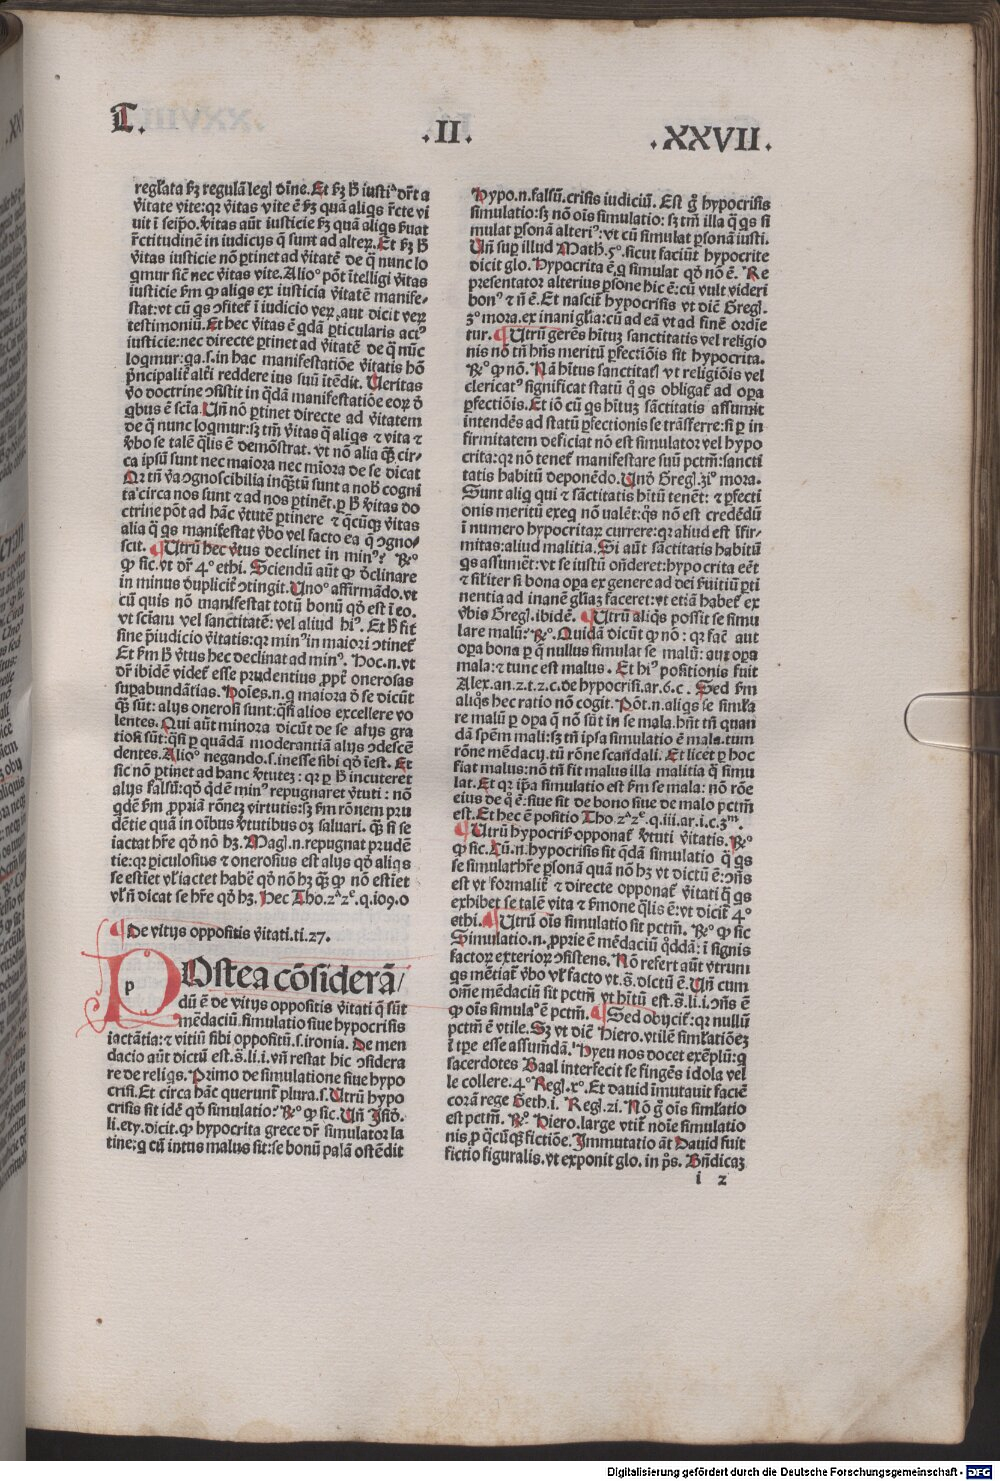 T.
.II.
.XXVII.
regl̃ata ẜꝫ regulã legl̃ dĩne. Et ẜꝫ ɦ̃ iustiᵃ dr̃t a
ṽitate vite: qꝛ ṽitas vite ẽ ẜꝫ quã aliqs r̃cte vi
uit ĩ seip̃o. ṽitas aũt iusticie ẜꝫ quã aliqs ẜuat
r̃ctitudinẽ in iudicijs q̃ sunt ad alteꝝ. Et ẜꝫ ɦ̃
ṽitas iusticie nõ ꝑtinet ad ṽitatẽ de q̃ nunc lo
qmur sic̃ nec ṽitas vite. Alioº põt ĩtelligi ṽitas
iusticie ẜm ꝙ aliqs ex iusticia ṽitatẽ manife⸗
stat: vt cũ qs ꝯfitet̃ ĩ iudicio veꝝ aut dicit veꝝ
testimoniũ. Et hec ṽitas ẽ qdã ꝑticularis act⁹
iusticie: nec directe ꝑtinet ad ṽitatẽ de q̃ nũc
loqmur: qa .s. in hac manifestatiõe ṽitatis hõ
p̃ncipalit̃ alt̃i reddere ius suũ ĩtẽdit. Ueritas
ṽo doctrine ꝯsistit in q̃dã manifestatiõe eoꝝ ð
qbus ẽ scĩa. Uñ nõ ꝑtinet directe ad ṽitatem
de q̃ nunc loqmur: sꝫ tm̃ ṽitas q̃ aliqs ⁊ vita ⁊
ṽbo se talẽ q̃lis ẽ demõstrat. vt nõ alia q̃ꝫ cir⸗
ca ipsũ sunt nec maiora nec mĩora de se dicat
Qꝛ tñ ṽa ꝯgnoscibilia inq̃ꝫtũ sunt a nob̃ cogni
ta circa nos sunt ⁊ ad nos ꝑtinẽt. ꝑ ɦ̃ ṽitas do
ctrine põt ad hãc ṽtutẽ ꝑtinere ⁊ q̃cũqꝫ ṽitas
alia q̃ qs manifestat ṽbo vel facto ea q̃ ꝯgno⸗
scit. ¶ Utrũ hec ṽtus declinet in min⁹? ℞º
ꝙ sic. vt dr̃ 4º ethi. Sciendũ aũt ꝙ ð̃clinare
in minus duplicit̃ ꝯtingit. Unoº affirmãdo. vt
cũ quis nõ manifestat totũ bonũ qð est ĩ eo.
vt sciam vel sanctitatẽ: vel aliud hi⁹. Et ɦ̃ fit
sine p̃iudicio ṽitatis: qꝛ min⁹ in maiori ꝯtinet̃
Et ẜm ɦ̃ ṽtus hec declinat ad min⁹. Hoc .n. vt
dr̃ ibidẽ videt̃ esse prudentius ꝓpt̃ onerosas
suꝑabundãtias. hoĩes .n. q maiora ð se dicũt
q̃ꝫ sũt: alijs onerosi sunt: q̃si alios excellere vo
lentes. Qui aũt minora dicũt de se alijs gra
tiosi sũt: q̃si ꝑ quãdã moderantiã alijs ꝯdescẽ
dentes. Alioº negando .s. inesse sibi qð ĩest. Et
sic nõ ꝑtinet ad hanc ṽtutẽꝫ: qꝛ ꝑ ɦ̃ incuteret
alijs falsũ: qð qdẽ min⁹ repugnaret ṽtuti: nõ
qdẽ ẜm ꝓpriã rõneꝫ virtutis: sꝫ ẜm rõnem pru
dẽtie quã in oĩbus ṽtutibus oꝫ saluari. q̃ꝫ si se
iactat hr̃e qð nõ hꝫ. Magl̃ .n. repugnat prudẽ
tie: qꝛ ꝑiculosius ⁊ onerosius est alijs qð aliqs
se estĩet vl̃ iactet habẽ qð nõ hꝫ q̃ꝫ ꝙ nõ estĩet
vl̃ ñ dicat se hr̃e qð hꝫ. Hec Tho. 2ª 2ᵉ. q. 109. o
¶ De vitijs oppositis ṽitati. ti. 27.
p
POstea cõsiderã/
dũ ẽ de vitijs oppositis ṽitati q̃ sũt
mẽdaciũ. simulatio siue hypocrisis
iactãtia: ⁊ vitiũ sibi oppositũ .s. ironia. De men
dacio aũt dictũ est .s̃. li. i. vñ restat hic ꝯsidera
re de reliqs. Primo de simulatione siue hypo
crisi. Et circa hãc querunt̃ plura .s. Utrũ hypo
crisis sit idẽ qð simulatio? ℞º ꝙ sic. Uñ Isid.
li. ety. dicit. ꝙ hypocrita grece dr̃ simulator la
tine: q cũ intus malus sit: se bonũ palã ostẽdit
Hypo .n. falsũ. crisis iudiciũ. Est g̃ hypocrisis
simulatio: sꝫ nõ oĩs simulatio: sꝫ tm̃ illa q̃ qs si
mulat ꝑsonã alteri⁹: vt cũ simulat ꝑsonã iusti.
Uñ suꝑ illud Math̃. 5º. sicut faciũt hypocrite
dicit glo. Hypocrita ẽ q simulat qð nõ ẽ. Re
presentator alterius ꝑsone hic ẽ: cũ vult videri
bon⁹ ⁊ ñ ẽ. Et nascit̃ hypocrisis vt diẽ Gregl̃.
3º mora. ex inani gl̃ia: cũ ad eã vt ad finẽ ordĩe
tur. ¶ Utrũ gerẽs hĩtuꝫ sanctitatis vel religio
nis nõ tñ hñs meritũ ꝑfectiõis sit hypocrita.
℞º ꝙ nõ. Nã hĩtus sanctitatꝭ vt religiõis vel
clericat⁹ significat statũ q̃ qs obligat̃ ad oꝑa
ꝑfectiõis. Et iõ cũ qs hĩtuꝫ sãctitatis assumit
intendẽs ad statũ ꝑfectionis se trãsferre: si ꝑ in
firmitatem deficiat nõ est simulator vel hypo
crita: qꝛ nõ tenet̃ manifestare suũ pctm̃: sancti
tatis habitũ deponẽdo. Unð Gregl̃. 3iº mora.
Sunt aliq̃ qui ⁊ sãctitatis hĩtũ tenẽt: ⁊ ꝑfecti
onis meritũ exeq nõ valẽt: q̃s nõ est credẽdũ
ĩ numero hypocritaꝝ currere: qꝛ aliud est ĩfir⸗
mitas: aliud malitia. Si aũt sãctitatis habitũ
qs assumẽt: vt se iustũ oñderet: hypocrita eẽt
⁊ sil̃iter si bona oꝑa ex genere ad dei ẜuitiũ ꝑti
nentia ad inanẽ gl̃iaꝫ faceret: vt etiã habet̃ ex
ṽbis Gregl̃. ibidẽ. ¶ Utrũ aliqs possit se simu
lare malũ? ℞º. Quidã dicũt ꝙ nõ: qꝛ faẽ aut
oꝑa bona ꝑ q̃ nullus simulat se malũ: aut oꝑa
mala: ⁊ tunc est malus. Et hi⁹ positionis fuit
Alex. an. 2. t. 2. c. de hypocrisi. ar. 6. c. Sed ẜm
aliq̃s hec ratio nõ cogit. Põt .n. aliqs se simĩla
re malũ ꝑ oꝑa q̃ nõ sũt in se mala. hñt tñ quan
dã spẽm mali: sꝫ tñ ipsa simulatio ẽ mala. tum
rõne mẽdacij. tũ rõne scañdali. Et licet ꝑ hoc
fiat malus: nõ tñ fit malus illa malitia q̃ simu
lat. Et qꝛ ip̃a simulatio est ẜm se mala: nõ rõe
eius de q̃ ẽ: siue sit de bono siue de malo pctm̃
est. Et hec ẽ positio Tho. 2ª 2ᵉ. q. iii. ar. i. c. 3ᵐ.
¶ Utrũ hypocris̃ opponat̃ ṽtuti ṽitatis. ℞º
ꝙ sic. Cũ .n. hypocrisis sit q̃dã simulatio q̃ qs
se simulat hr̃e ꝑsonã quã nõ hꝫ vt dictũ ẽ: ꝯñs
est vt formalit̃ ⁊ directe opponat̃ ṽitati q̃ qs
exhibet se talẽ vita ⁊ ẜmone q̃lis ẽ: vt dicit̃ 4º
ethi. ¶ Utrũ oĩs simulatio sit pctm̃. ℞º ꝙ sic
Simulatio .n. ꝓprie ẽ mẽdaciũ q̃ddã: ĩ signis
factoꝝ exterioꝝ ꝯsistens. Nõ refert aũt vtrum
qs mẽtiat̃ ṽbo vl̃ facto vt .s̃. dictũ ẽ. Uñ cum
oẽm̃ mẽdaciũ sit pctm̃ vt hĩtũ est .s̃. li. i. ꝯñs ẽ
ꝙ oĩs simulaº ẽ pctm̃. ¶ Sed obijcit̃: qꝛ nullũ
pctm̃ ẽ vtile. Sꝫ vt diẽ Hiero. vtilẽ simĩlatiõeꝫ
ĩ tꝑe esse assumẽdã. Hyeu nos docet exẽplũ: q
sacerdotes Baal interfecit se fingẽs idola vel
le collere. 4º Regl̃. xº. Et dauid ĩmutauit faciẽ
corã rege Geth. i. Regl̃. 2i. Nõ g̃ oĩs simĩlatio
est pctm̃. ℞º. Hiero. large vtit̃ noĩe simulatio
nis ꝓ q̃cũqꝫ fictiõe. Immutatio aũt Dauid fuit
fictio figuralis. vt exponit glo. in p̃s. Bñdicaꝫ
i 2
Digitalisierung gefördert durch die Deutsche Forschungsgemeinschaft - DFG